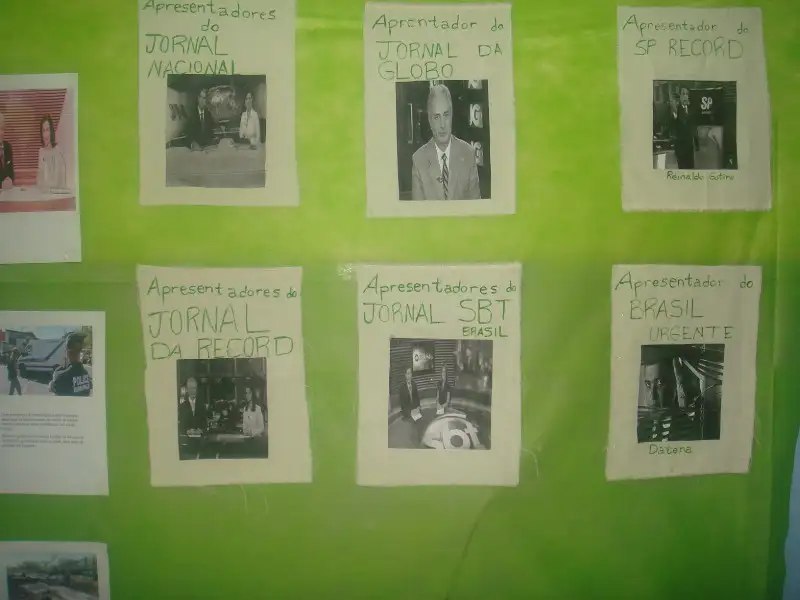 Apresentadores
do
JORNAL
NACIONAL
Aprentador do
JORNAL DA
GLOBO
Apresentador do
SP RECORD
SP
Reinaldo Gottino
Apresentadores do
JORNAL
DA RECORD
Apresentadores do
JORNAL SBT
BRASIL
sbt
Apresentador do
BRASIL
URGENTE
Datena